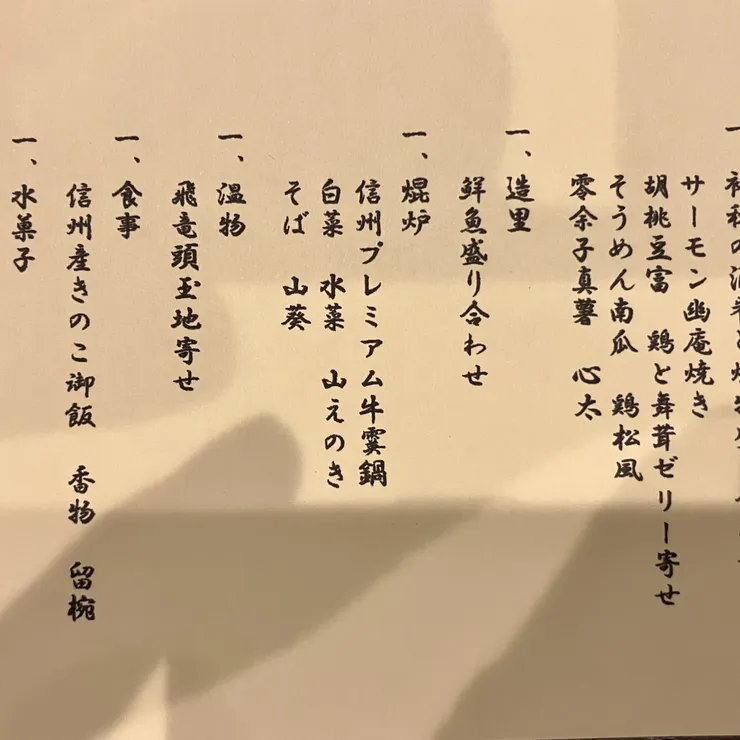 サーモン幽庵焼き
胡桃豆富 鶏と舞茸ゼリー寄せ
そうめん南瓜 鶏松風
零余子真薯 心太
一、造里
鮮魚盛り合わせ
一、焜炉
信州プレミアム牛霙鍋
白菜 水菜 山えのき
そば 山葵
一、温物
飛竜頭玉地寄せ
一、食事
信州産きのこ御飯 香物 留椀
一、水菓子